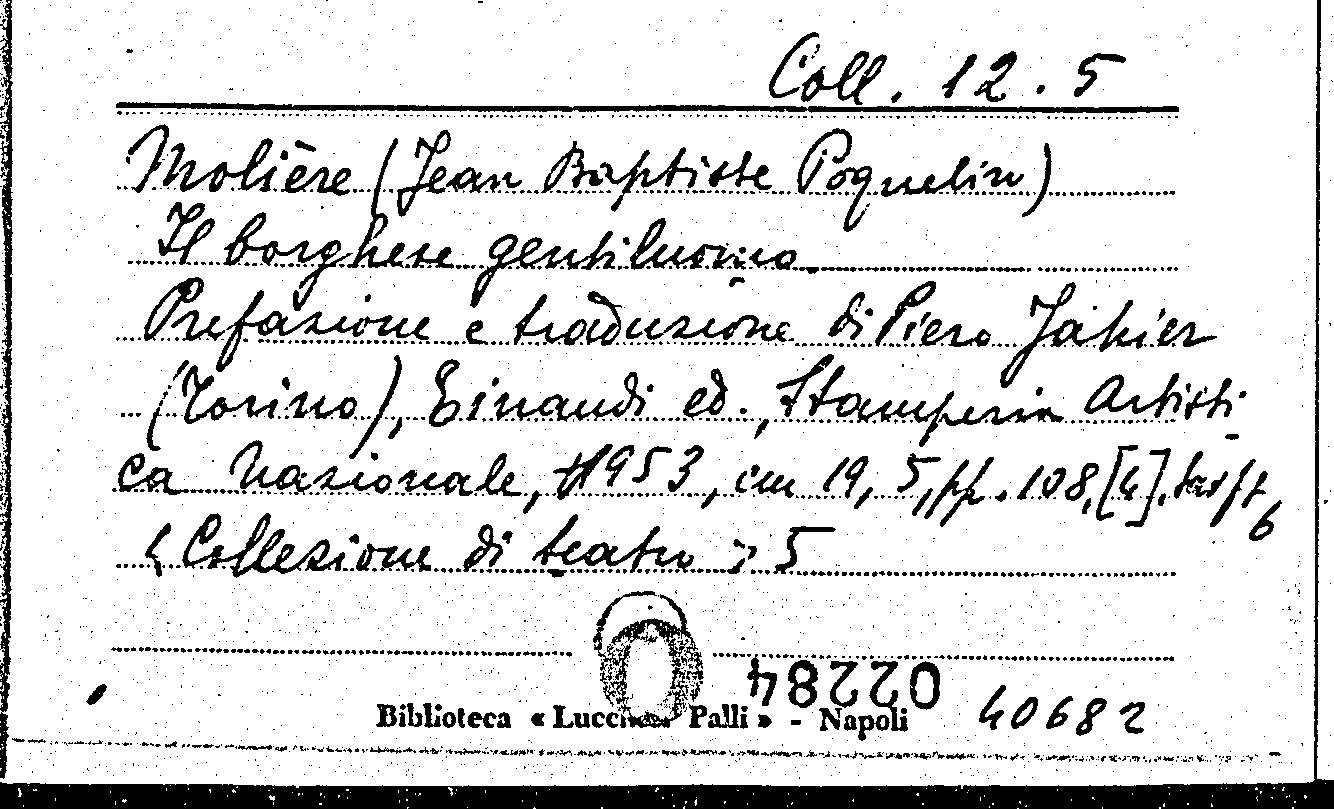 Coll. 12.5
Molière (Jean Baptiste Poquelin)
Il borghese gentiluomo.
Prefazione e traduzione di Piero Jahier
(Torino), Einaudi ed., Stamperia Artisti-
ca Nazionale, 1953, cm 19,5, pp. 108, [4],
« Collezione di teatro » 5
02284
Biblioteca « Lucchesi Palli » - Napoli 40682